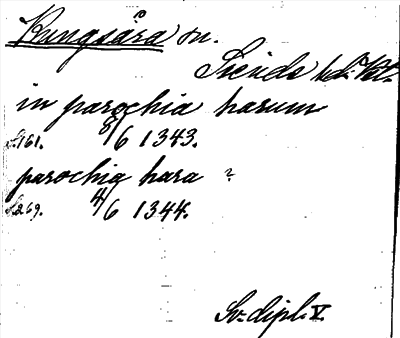 Kungsåra sn.
Snevds hd. Vstm.
in parochia harum
s. 161. 8/6 1343.
parochia hara ?
s. 269. 4/6 1344.
Sv. dipl. V.